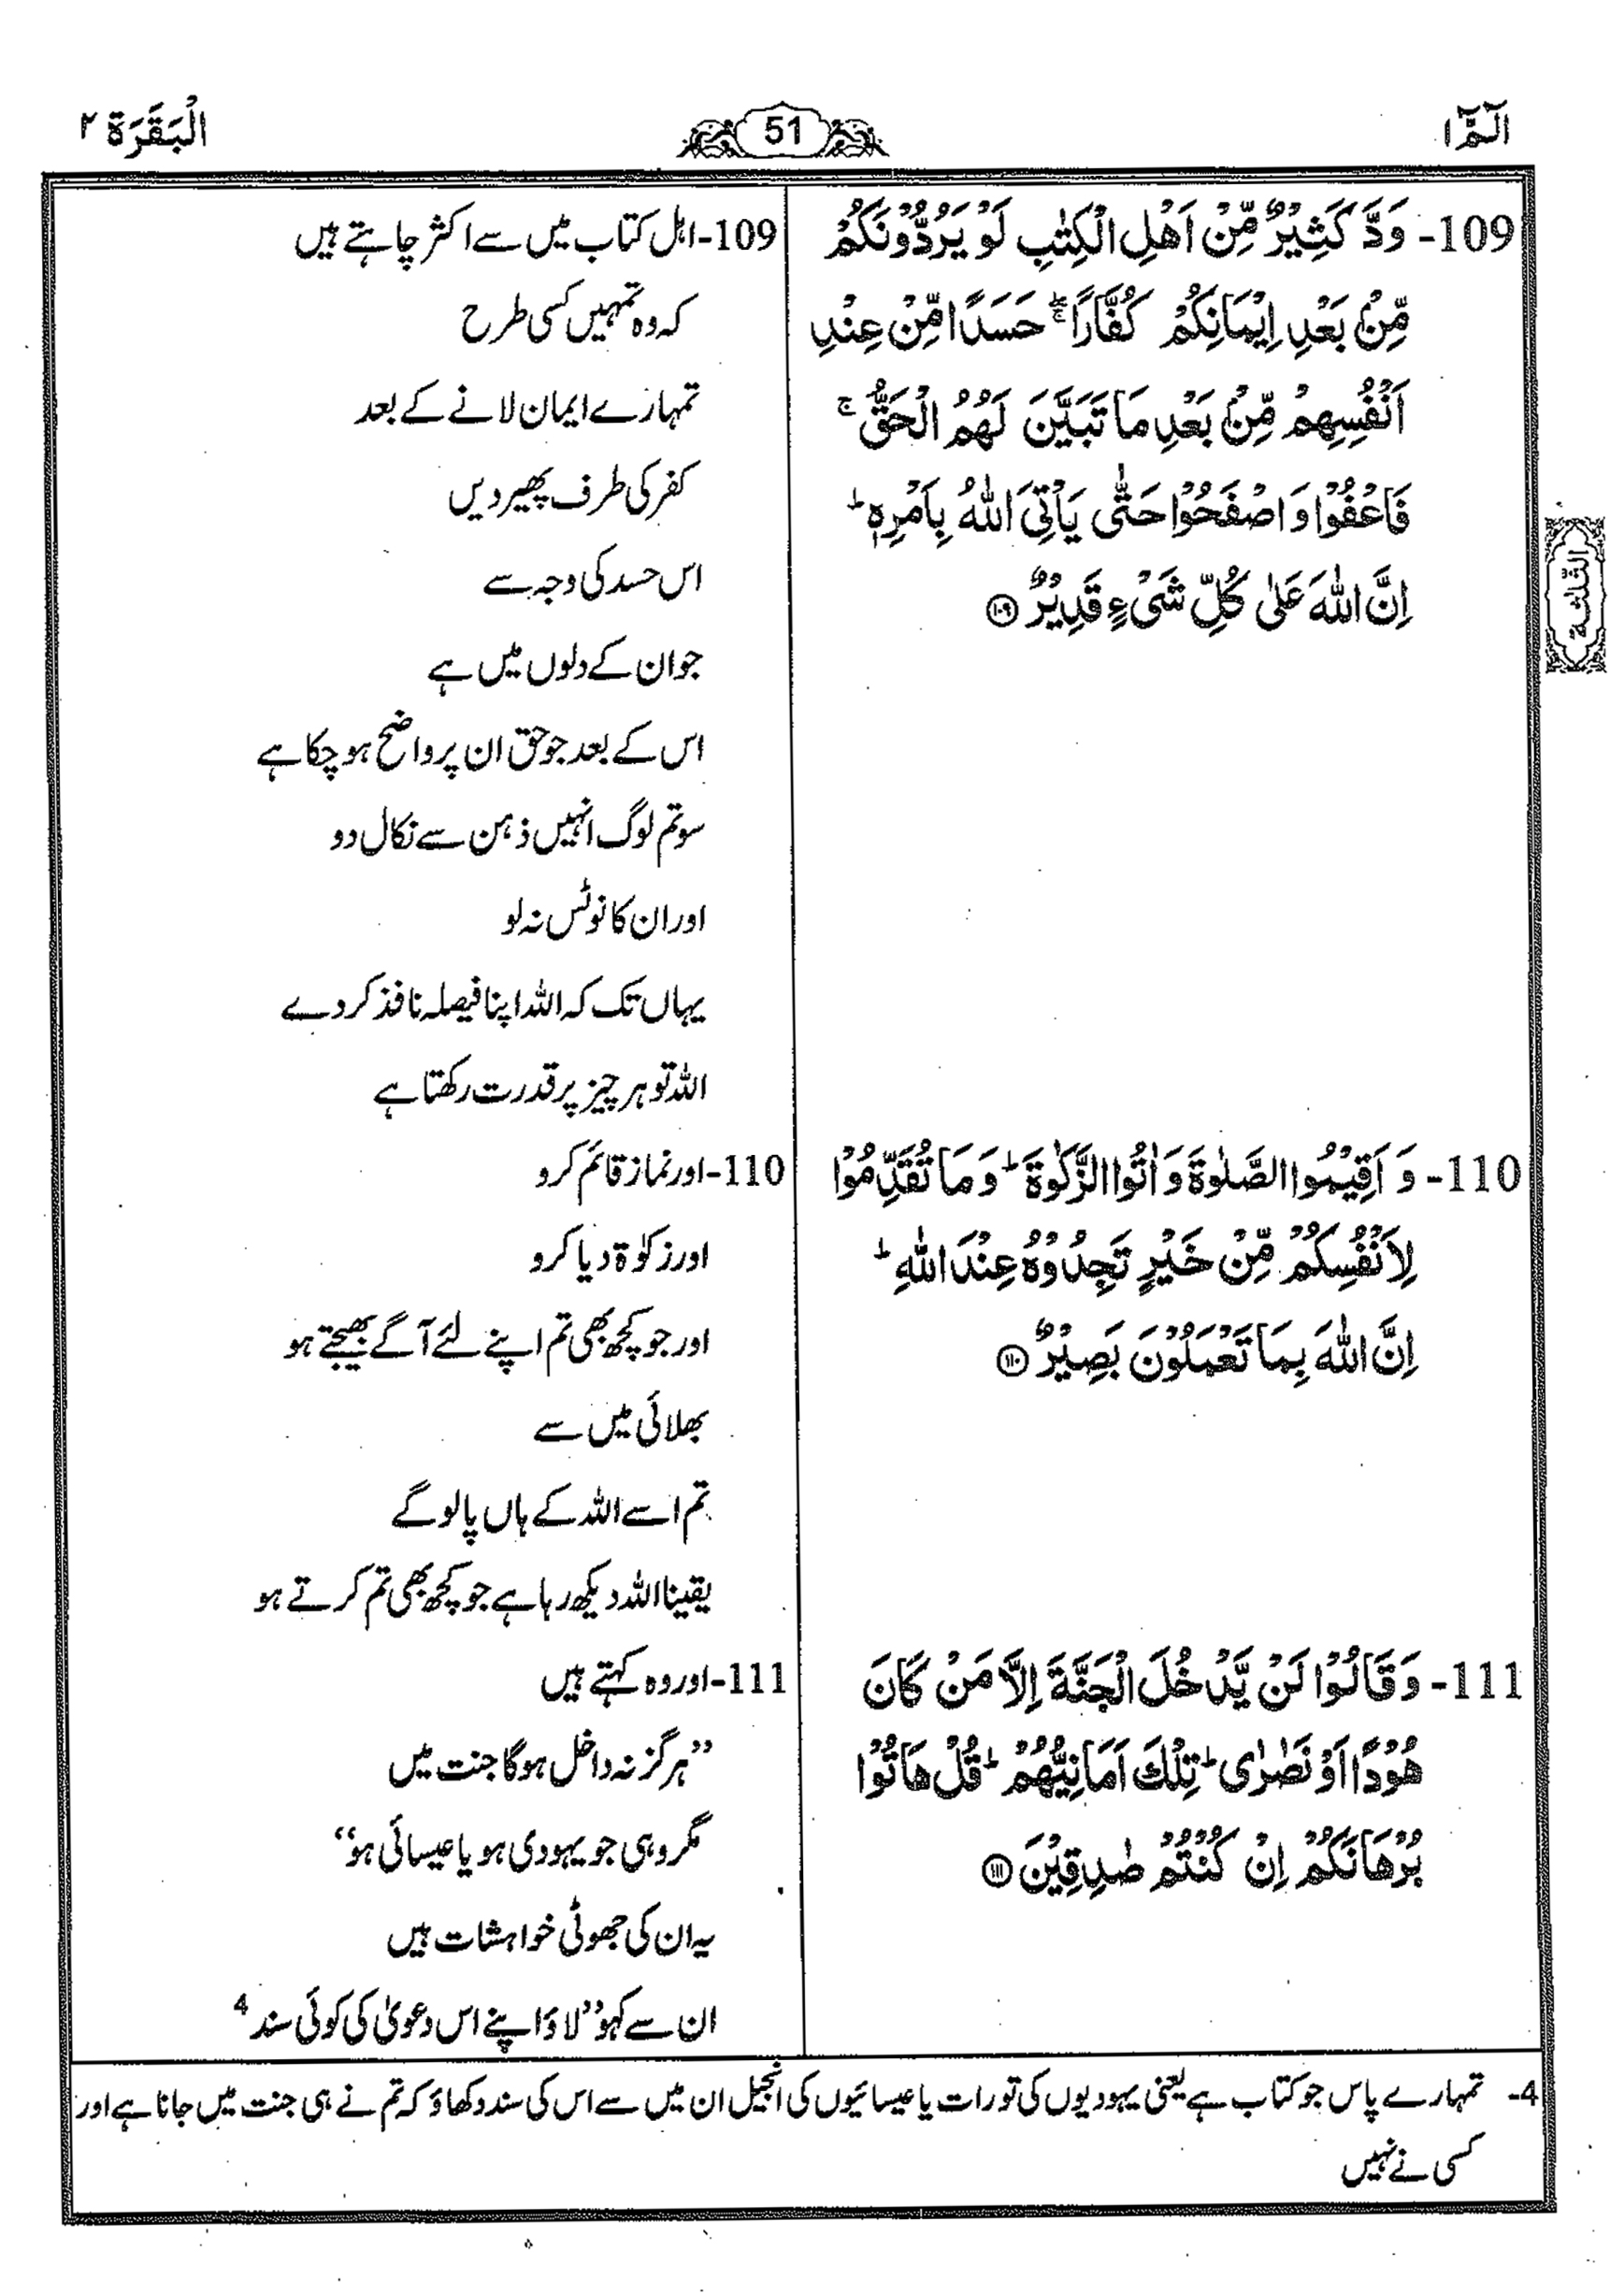 الٓمّٓ ۱
51
الْبَقَرَة ۲
109- وَدَّ كَثِیْرٌ مِّنْ اَهْلِ الْكِتٰبِ لَوْ یَرُدُّوْنَكُمْ
مِّنْۢ بَعْدِ اِیْمَانِكُمْ كُفَّارًا ۖۚ حَسَدًا مِّنْ عِنْدِ
اَنْفُسِهِمْ مِّنْۢ بَعْدِ مَا تَبَیَّنَ لَهُمُ الْحَقُّ ۚ
فَاعْفُوْا وَ اصْفَحُوْا حَتّٰی یَاْتِیَ اللّٰهُ بِاَمْرِهٖ ؕ
اِنَّ اللّٰهَ عَلٰی كُلِّ شَیْءٍ قَدِیْرٌ ﴿۱۰۹﴾
الثلثة
110- وَ اَقِیْمُوا الصَّلٰوةَ وَ اٰتُوا الزَّكٰوةَ ؕ وَ مَا تُقَدِّمُوْا
لِاَنْفُسِكُمْ مِّنْ خَیْرٍ تَجِدُوْهُ عِنْدَ اللّٰهِ ؕ
اِنَّ اللّٰهَ بِمَا تَعْمَلُوْنَ بَصِیْرٌ ﴿۱۱۰﴾
111- وَ قَالُوْا لَنْ یَّدْخُلَ الْجَنَّةَ اِلَّا مَنْ كَانَ
هُوْدًا اَوْ نَصٰرٰی ؕ تِلْكَ اَمَانِیُّهُمْ ؕ قُلْ هَاتُوْا
بُرْهَانَكُمْ اِنْ كُنْتُمْ صٰدِقِیْنَ ﴿۱۱۱﴾
109- اہل کتاب میں سے اکثر چاہتے ہیں
کہ وہ تمہیں کسی طرح
تمہارے ایمان لانے کے بعد
کفر کی طرف پھیر دیں
اس حسد کی وجہ سے
جو ان کے دلوں میں ہے
اس کے بعد جو حق ان پر واضح ہو چکا ہے
سو تم لوگ انہیں ذہن سے نکال دو
اور ان کا نوٹس نہ لو
یہاں تک کہ اللہ اپنا فیصلہ نافذ کر دے
اللہ تو ہر چیز پر قدرت رکھتا ہے
110- اور نماز قائم کرو
اور زکوٰۃ دیا کرو
اور جو کچھ بھی تم اپنے لئے آگے بھیجتے ہو
بھلائی میں سے
تم اسے اللہ کے ہاں پالو گے
یقیناً اللہ دیکھ رہا ہے جو کچھ بھی تم کرتے ہو
111- اور وہ کہتے ہیں
”ہرگز نہ داخل ہوگا جنت میں
مگر وہی جو یہودی ہو یا عیسائی ہو“
یہ ان کی جھوٹی خواہشات ہیں
ان سے کہو ”لاؤ اپنے اس دعویٰ کی کوئی سند 4
4- تمہارے پاس جو کتاب ہے یعنی یہودیوں کی تورات یا عیسائیوں کی انجیل ان میں سے اس کی سند دکھاؤ کہ تم نے ہی جنت میں جانا ہے اور
کسی نے نہیں